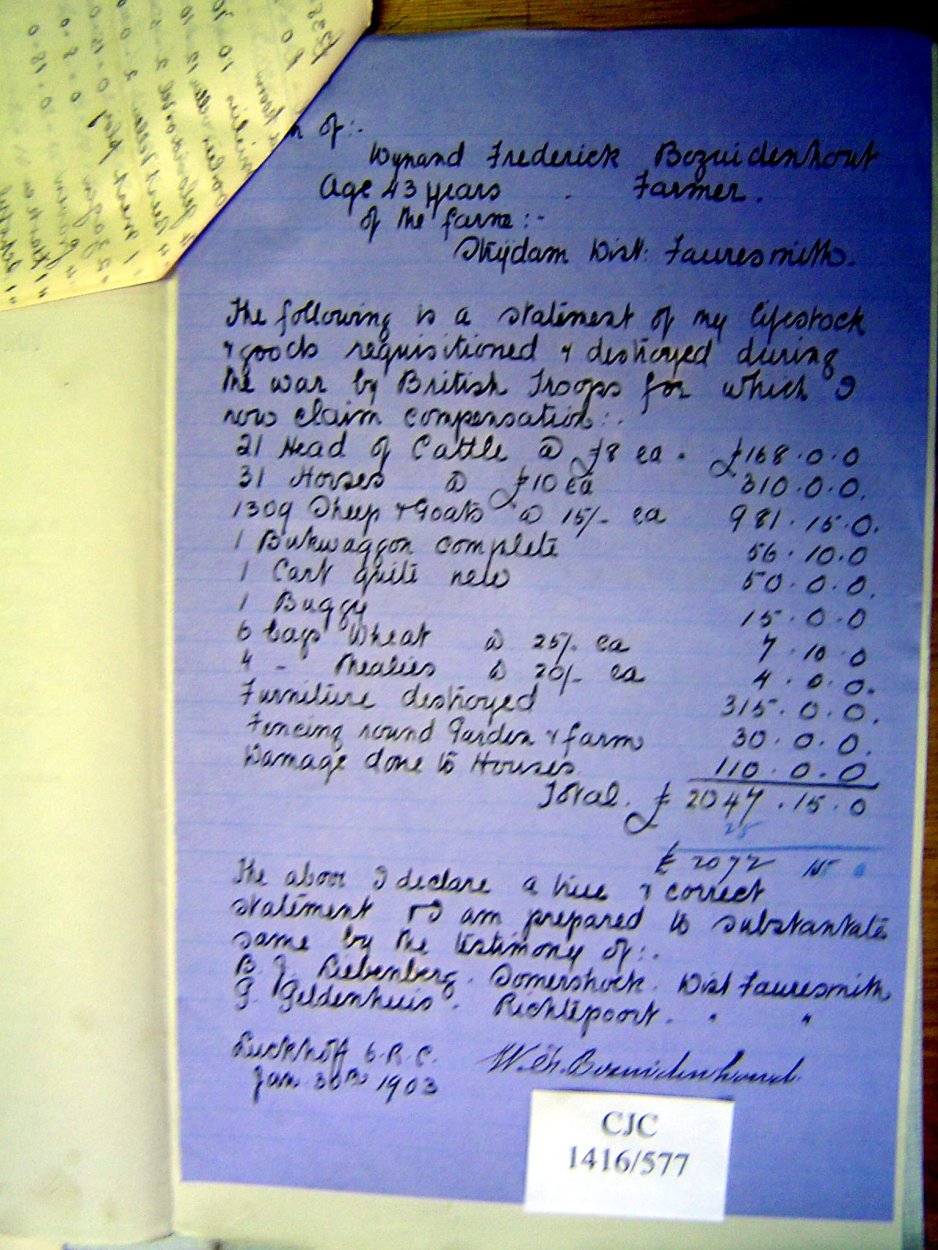 of:-
Wynand Frederick Bezuidenhout
Age 43 years . Farmer.
of the farm:-
Dist: Fauresmith.
The following is a statement of my lifestock
& goods requisitioned & destroyed during
the war by British Troops for which I
now claim compensation:-
21 Head of Cattle @ £8 ea. £168.0.0
31 Horses @ £10 ea 310.0.0.
1309 Sheep & Goats @ 15/- ea 981.15.0.
1 Bukwaggon complete 56.10.0
1 Cart quite new 50.0.0.
1 Buggy 15.0.0
6 bags Wheat @ 25/- ea 7.10.0
4 - Mealies @ 20/- ea 4.0.0.
Furniture destroyed 315.0.0.
Fencing round Garden & farm 30.0.0.
Damage done to Houses 110.0.0
Total. £2047.15.0
25
£2072 15 0
The above I declare a true & correct
statement & I am prepared to substantate
same by the testimony of:-
B. J. Liebenberg. Dist Fauresmith
G. Geldenhuis. " "
Luckhoff O.R.C.
Jan 30th 1903
CJC
1416/577